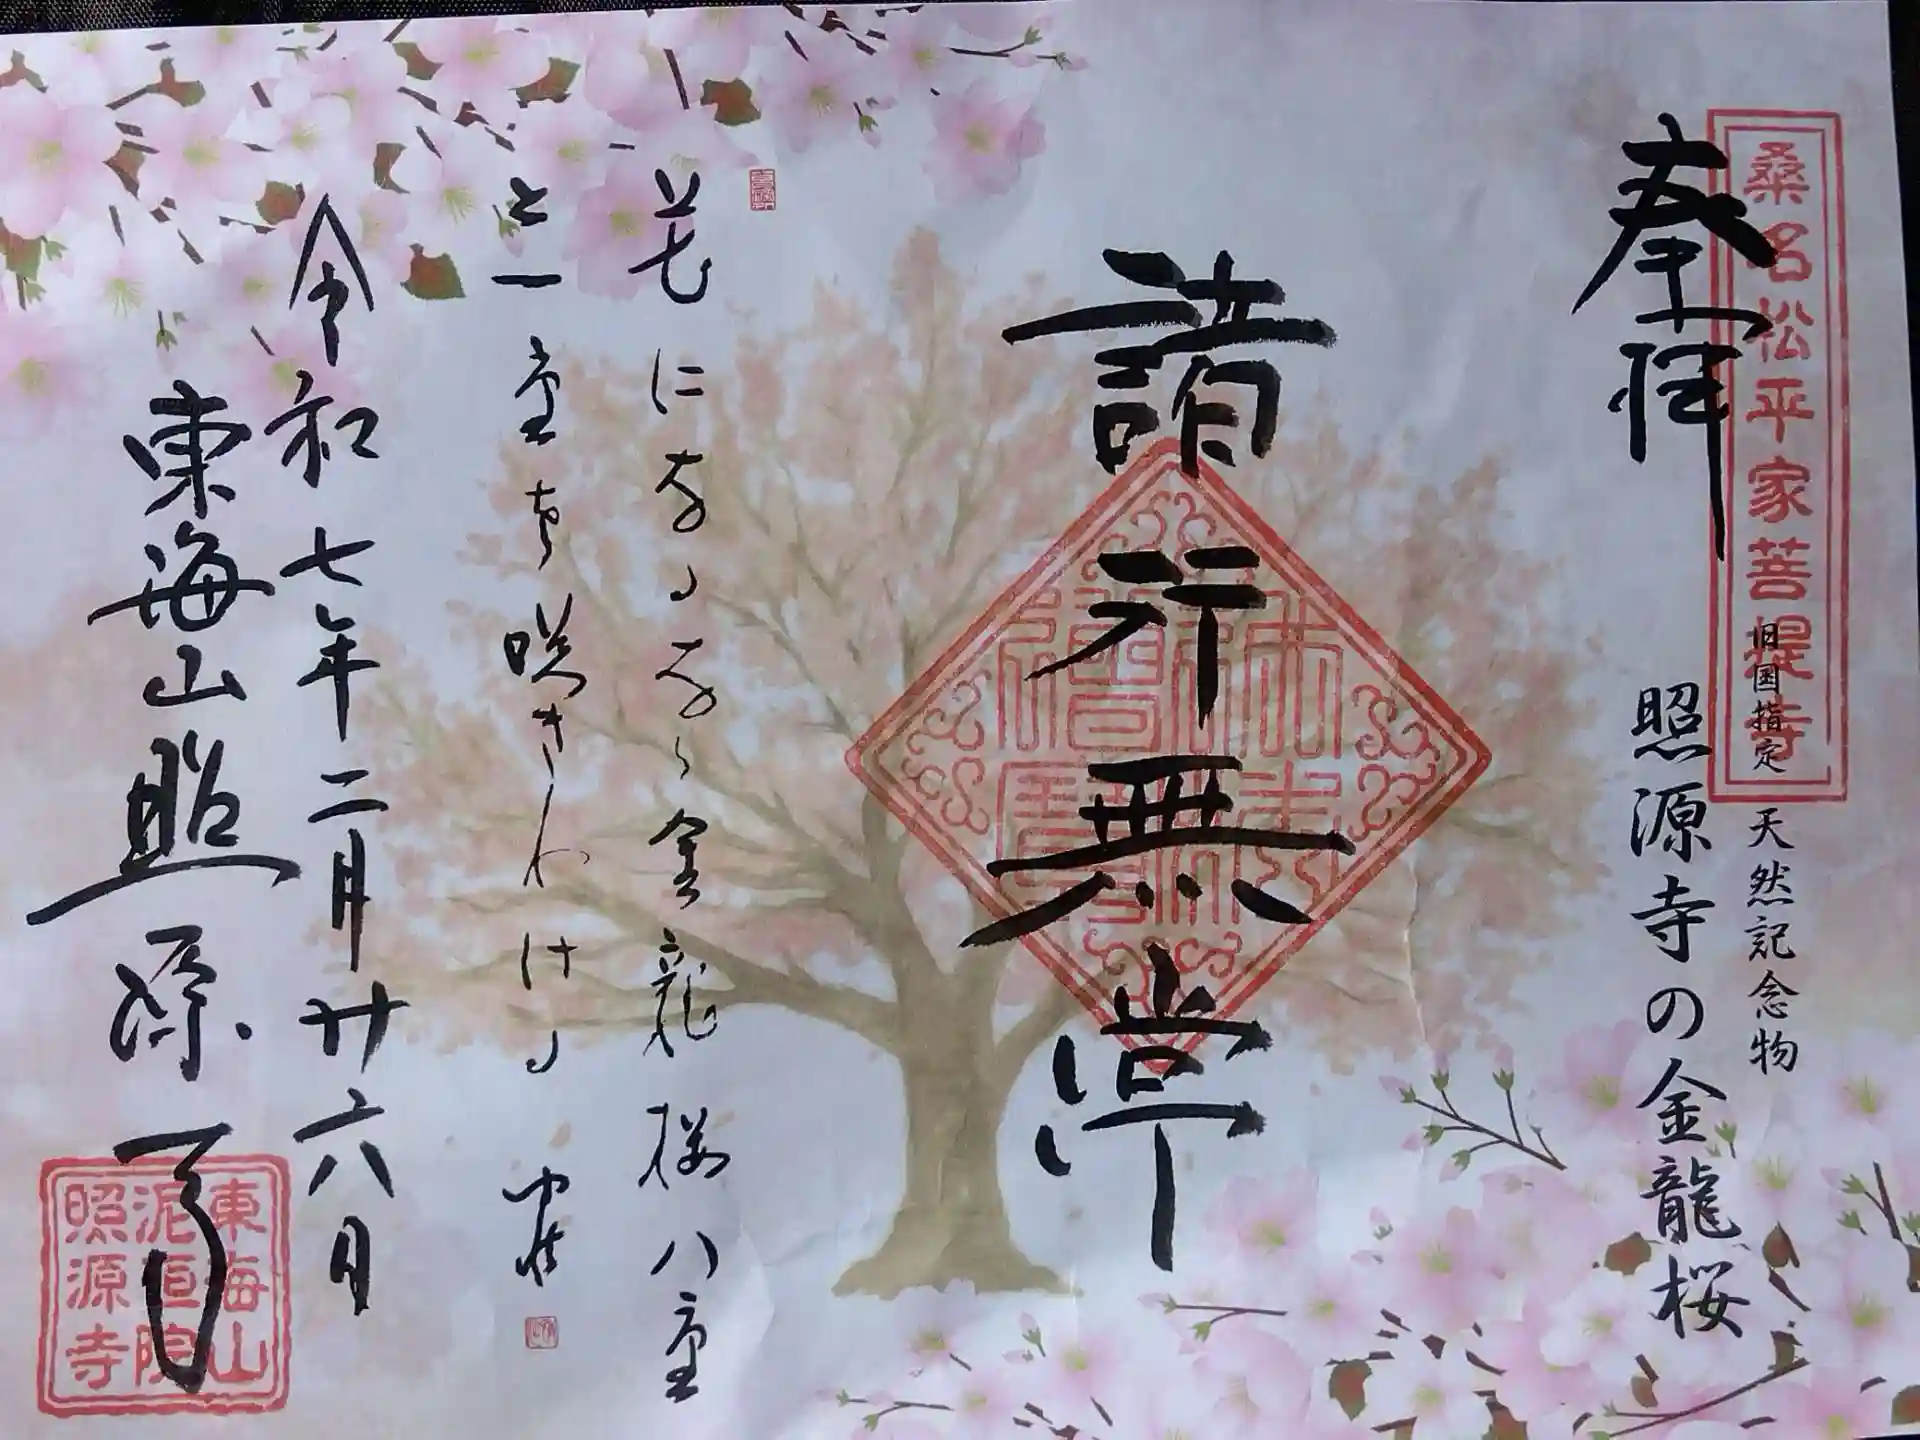 桑名松平家菩提寺
奉拝
旧国指定 天然記念物
照源寺の金龍桜
諸行無常
花になるなら金龍桜八重
と一重す咲きわける
令和七年二月廿六日
東海山照源寺
佛法僧寶
東海山
泥洹院
照源寺